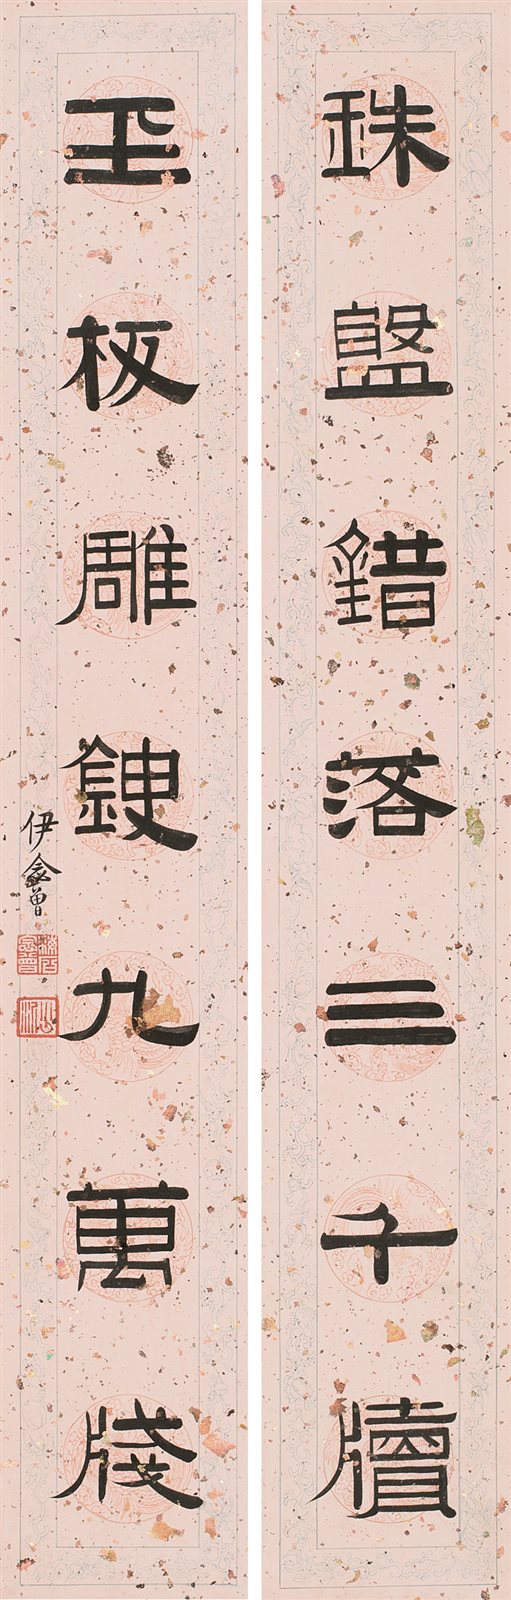 珠盤錯落三千牘
玉板雕鎪九萬牋
伊念曾